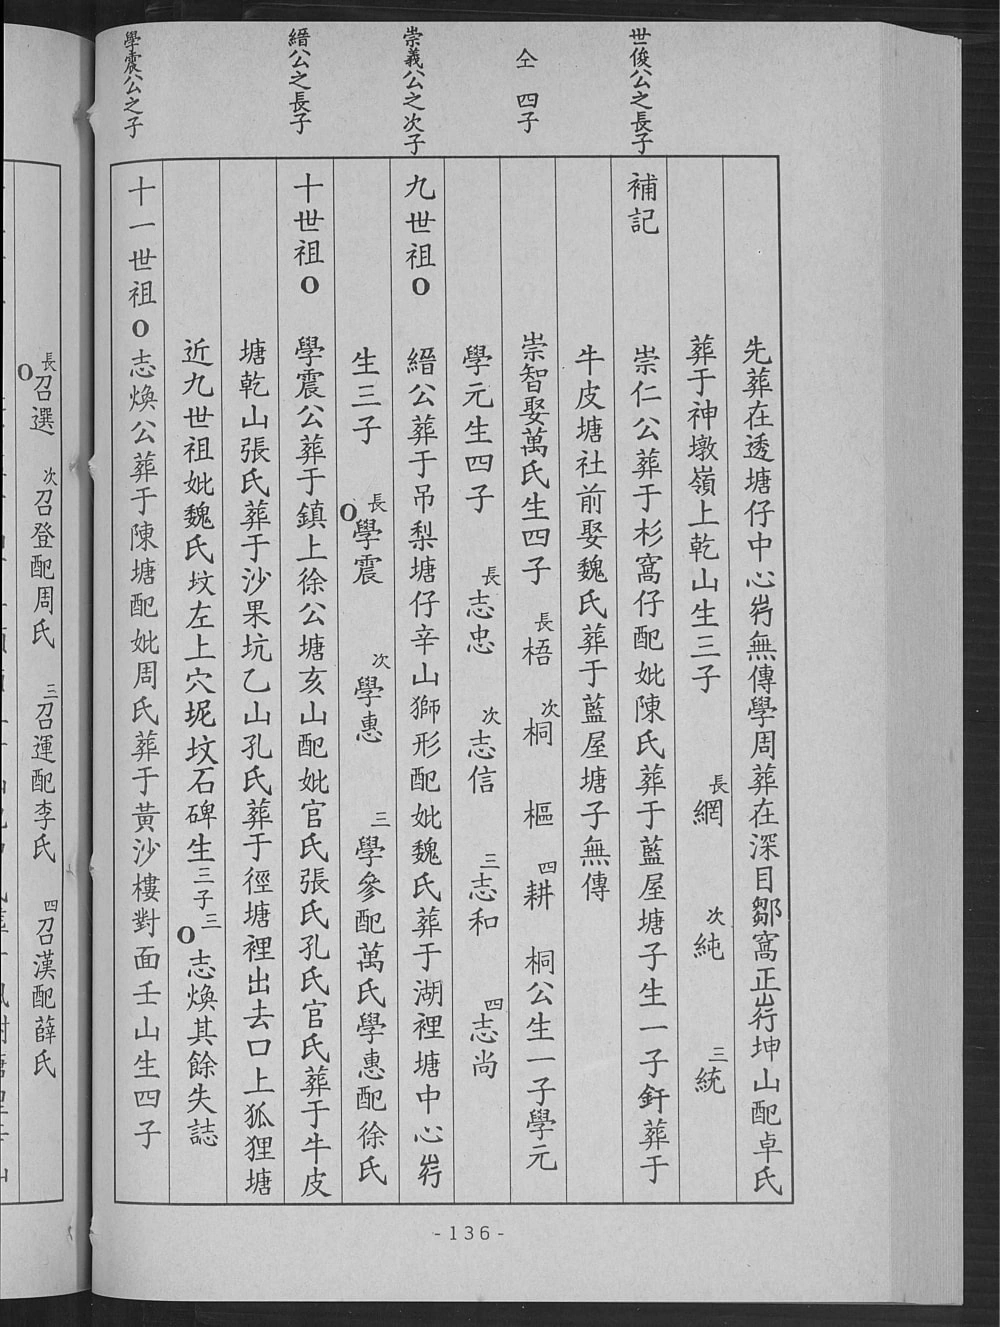 世俊公之長子
仝　四子
崇義公之次子
縉公之長子
學震公之子
先葬在透塘仔中心㟁無傳學周葬在深目鄒窩正㟁坤山配卓氏
葬于神墩嶺上乾山生三子　長網　次純　三統
補記　崇仁公葬于杉窩仔配妣陳氏葬于藍屋塘子生一子釬葬于
牛皮塘社前娶魏氏葬于藍屋塘子無傳
崇智娶萬氏生四子　長梧　次桐　樞　四耕　桐公生一子學元
學元生四子　長志忠　次志信　三志和　四志尚
九世祖O　縉公葬于吊梨塘仔辛山獅形配妣魏氏葬于湖裡塘中心㟁
生三子　長O學震　次學惠　三學參配萬氏學惠配徐氏
十世祖O　學震公葬于鎮上徐公塘亥山配妣官氏張氏孔氏官氏葬于牛皮
塘乾山張氏葬于沙果坑乙山孔氏葬于徑塘裡出去口上狐狸塘
近九世祖妣魏氏坟左上穴坭坟石碑生三子三O志煥其餘失誌
十一世祖O志煥公葬于陳塘配妣周氏葬于黃沙樓對面壬山生四子
-136-
長O召選　次召登配周氏　三召運配李氏　四召漢配薛氏